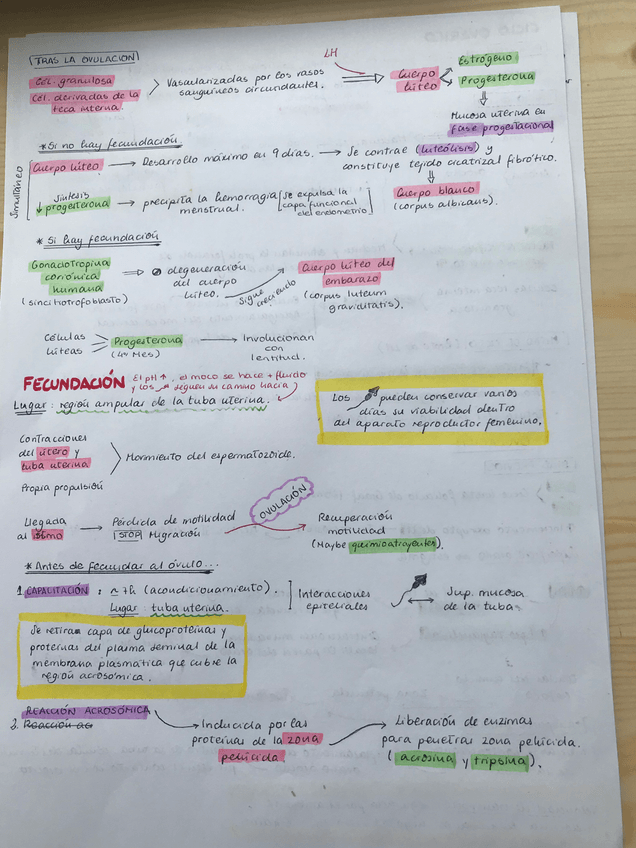 TRAS LA OVULACIÓN
LH
Cél. granulosa
Cél. derivadas de la
teca interna.
Vascularizadas por los vasos
sanguíneos circundantes.
Cuerpo
lúteo
Estrógeno
Progesterona
Mucosa uterina en
fase progestacional
* Si no hay fecundación
Simultáneo
Cuerpo lúteo → Desarrollo máximo en 9 días. → Se contrae (luteólisis) y
constituye tejido cicatrizal fibrótico.
Cuerpo blanco
(corpus albicans).
Síntesis
↓ progesterona → precipita la hemorragia
menstrual.
[Se expulsa la
capa funcional
del endometrio]
* Si hay fecundación
Gonadotropina
coriónica
humana
(sincitiotrofoblasto)
degeneración
del cuerpo
lúteo.
Sigue creciendo
Cuerpo lúteo del
embarazo
(corpus luteum
graviditatis).
Células
lúteas
Progesterona
(4º Mes)
Involucionan
con
lentitud.
FECUNDACIÓN El pH ↑, el moco se hace + fluido
y los siguen su camino hacia
Lugar: región ampular de la tuba uterina.
Los pueden conservar varios
días su viabilidad dentro
del aparato reproductor femenino.
Contracciones
del útero y
tuba uterina
Propia propulsión
Movimiento del espermatozoide.
OVULACIÓN
Llegada
al istmo
→ Pérdida de motilidad
STOP Migración
Recuperación
motilidad
(Maybe quimioatrayentes).
* Antes de fecundar al óvulo...
1. CAPACITACIÓN: ~ 7h (acondicionamiento).
Lugar: tuba uterina.
Interacciones
epiteliales
Sup. mucosa
de la tuba
Se retiran capa de glucoproteínas y
proteínas del plasma seminal de la
membrana plasmática que cubre la
región acrosómica.
REACCIÓN ACROSÓMICA
2. Reacción ac
Inducida por las
proteínas de la zona
pelúcida
Liberación de enzimas
para penetrar zona pelúcida.
(acrosina y tripsina).